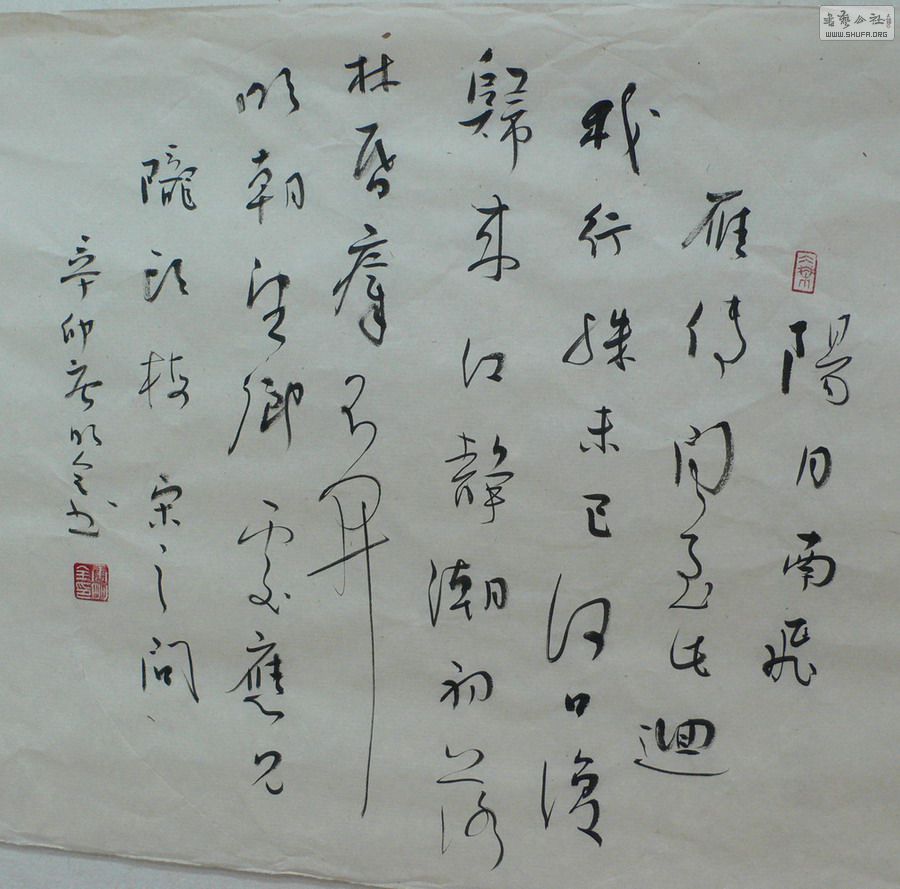 陽月南飛
雁傳聞至此迴
我行殊未已何日復
歸来江靜潮初落
林昏瘴不開
明朝望鄉處應見
隴頭梅 宋之問
辛卯唐明全书
書藝公社
WWW.SHUFA.ORG